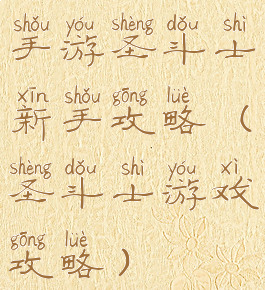 shǒu yóu shèng dǒu shì
手游圣斗士
xīn shǒu gōng lüè
新手攻略（
shèng dǒu shì yóu xì
圣斗士游戏
gōng lüè
攻略）